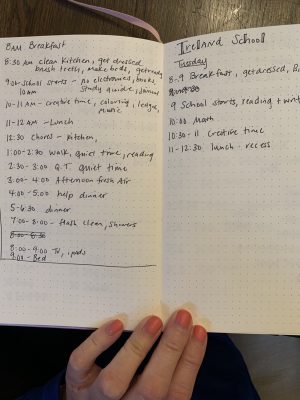 8AM Breakfast
8:30 AM clean kitchen, get dressed
brush teeth, make beds, get ready
9:00 school starts - no electronics, books
10AM study guide, journal
10-11 AM - creative time, colouring, legos,
music
11-12 AM - Lunch
12:30 Chores - kitchen,
1:00-2:30 walk, quiet time, reading
2:30-3:00 Q.T. quiet time
3:00-4:00 Afternoon fresh Air
4:00-5:00 help dinner
5-6:30 dinner
7:00-8:00 - flash clean, showers
8:00-9:00 TV, ipads
9:00 - Bed
Ireland School
Tuesday
8-9 Breakfast, get dressed,
9 School starts, reading +
10:00 Math
10:30-11 Creative time
11-12:30 lunch - recess